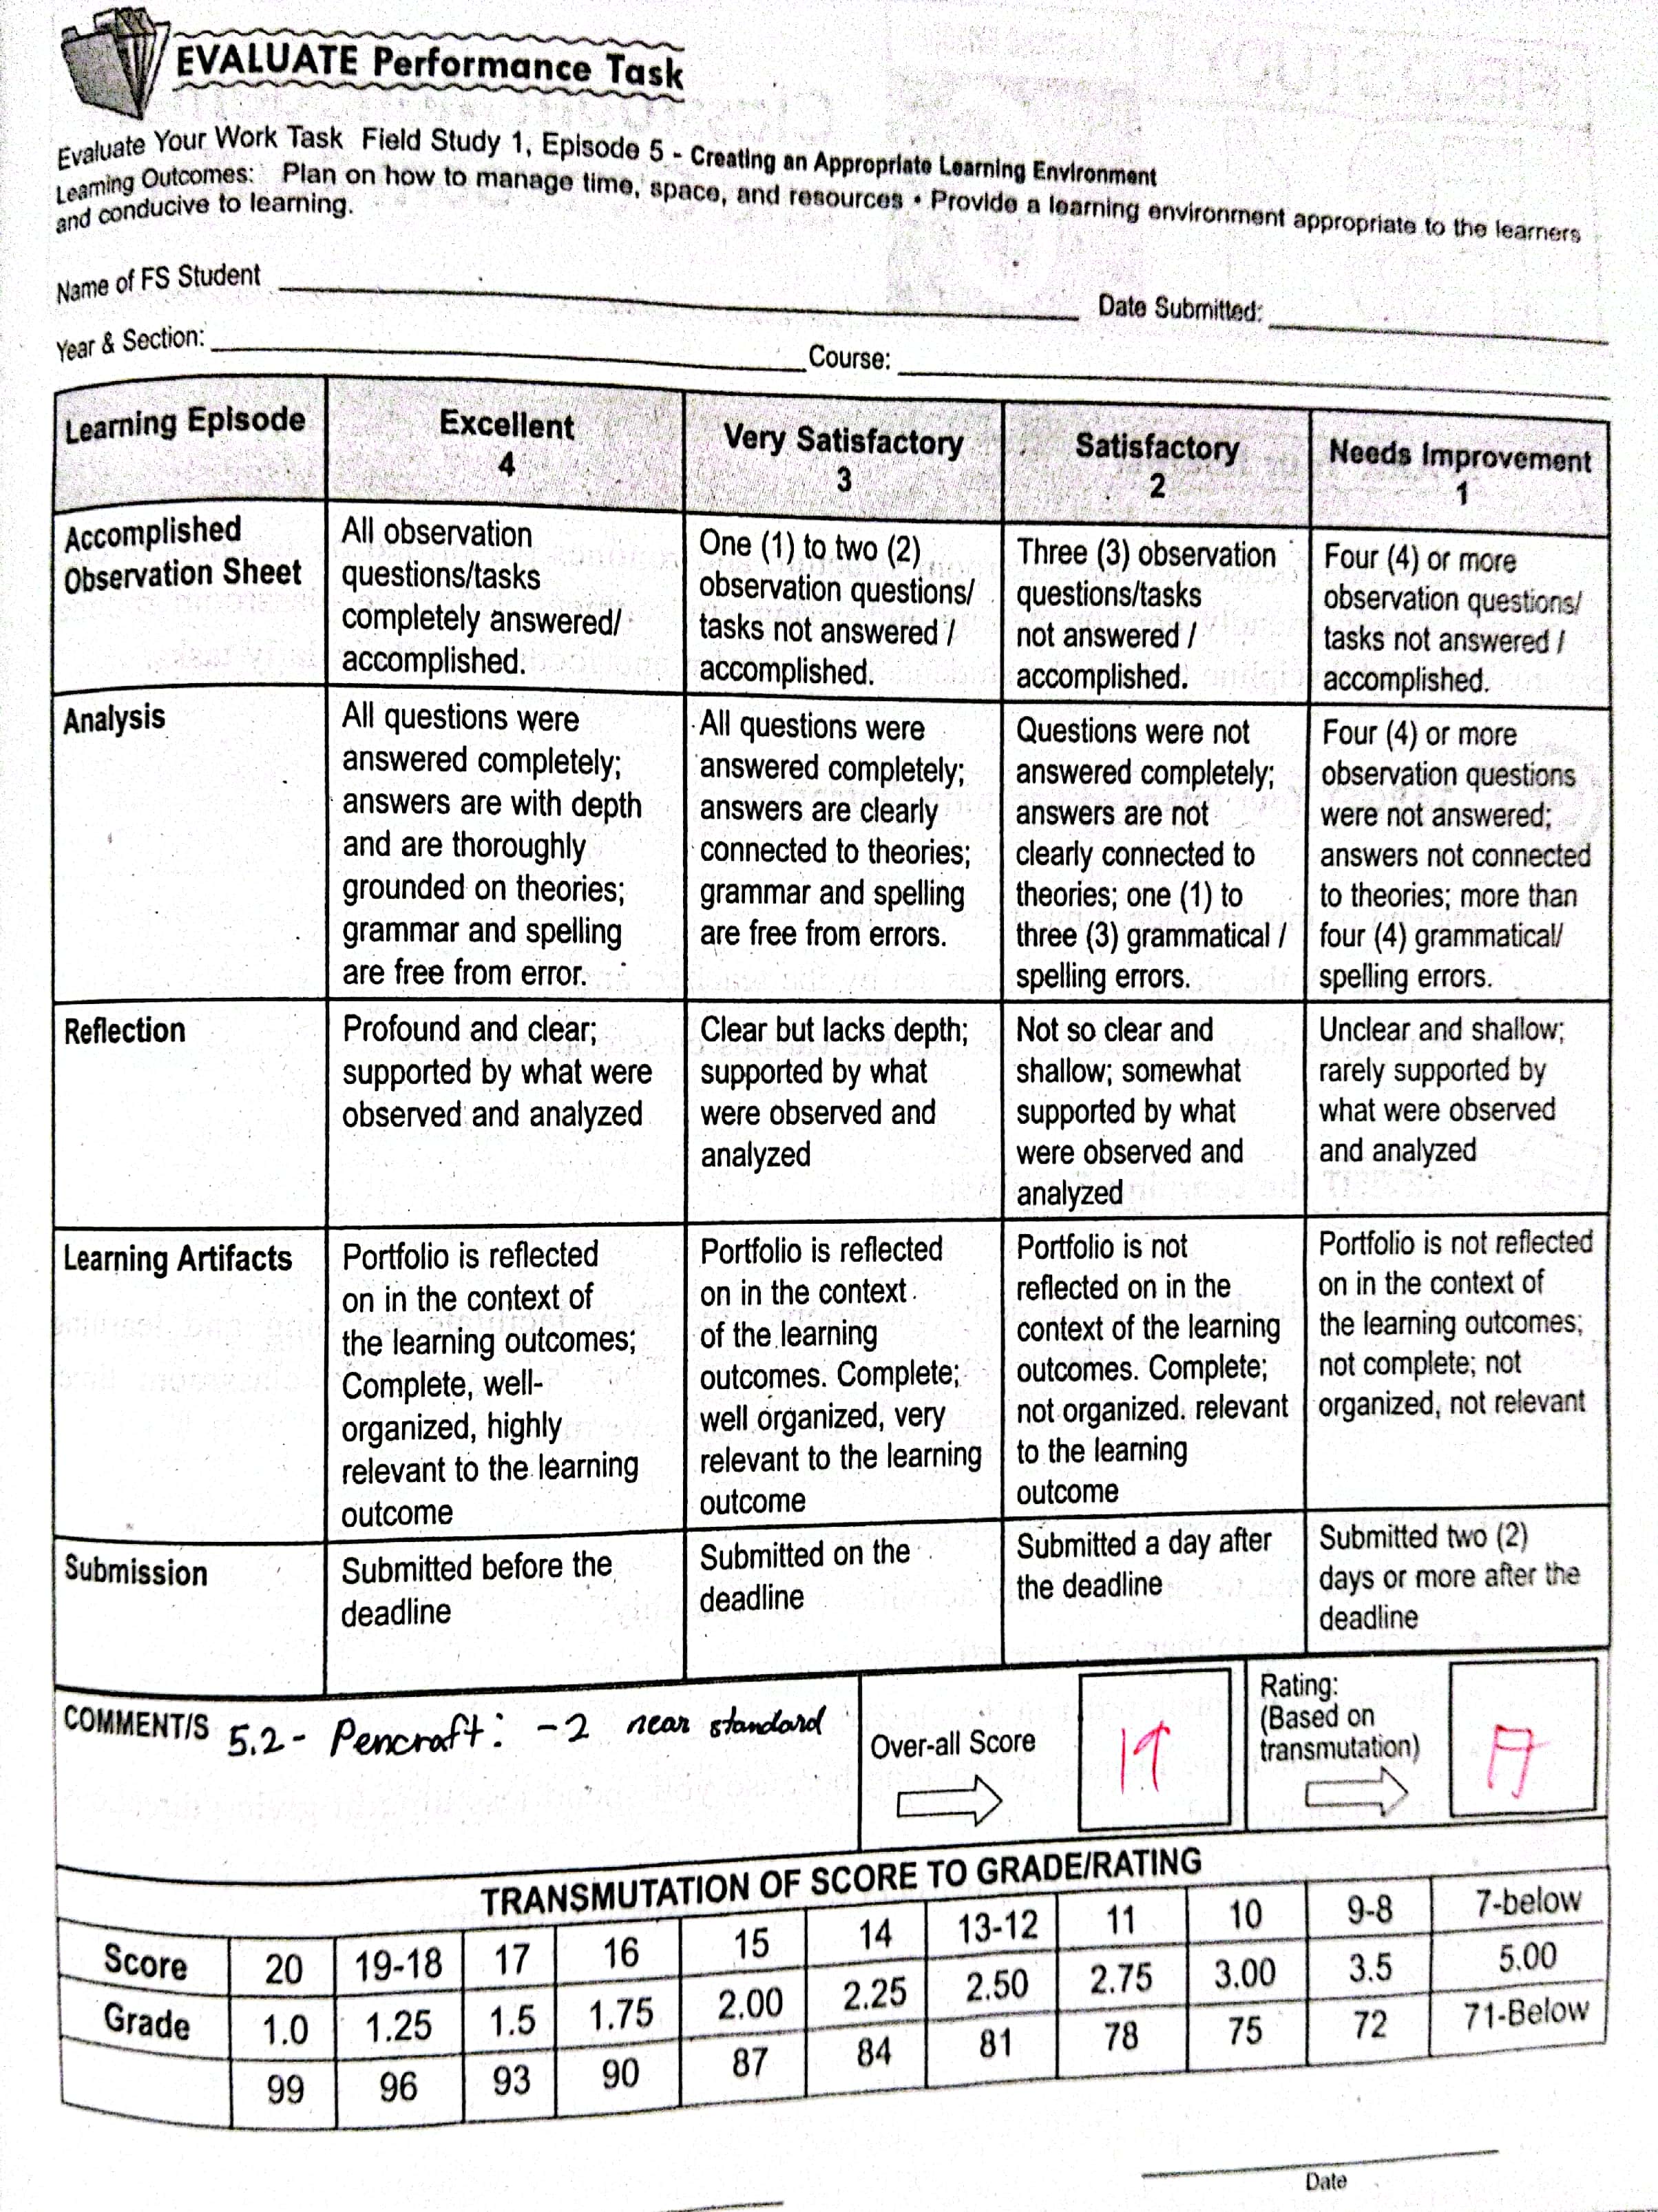 EVALUATE Performance Task
Evaluate Your Work Task Field Study 1, Episode 5 - Creating an Appropriate Learning Environment
Learning Outcomes: Plan on how to manage time, space, and resources • Provide a learning environment appropriate to the learners
and conducive to learning.
Name of FS Student
Date Submitted:
Year & Section:
Course:
Learning Episode
Excellent
4
Very Satisfactory
3
Satisfactory
2
Needs Improvement
1
Accomplished
Observation Sheet
All observation
questions/tasks
completely answered/
accomplished.
One (1) to two (2)
observation questions/
tasks not answered /
accomplished.
Three (3) observation
questions/tasks
not answered /
accomplished.
Four (4) or more
observation questions/
tasks not answered /
accomplished.
Analysis
All questions were
answered completely;
answers are with depth
and are thoroughly
grounded on theories;
grammar and spelling
are free from error.
All questions were
answered completely;
answers are clearly
connected to theories;
grammar and spelling
are free from errors.
Questions were not
answered completely;
answers are not
clearly connected to
theories; one (1) to
three (3) grammatical /
spelling errors.
Four (4) or more
observation questions
were not answered;
answers not connected
to theories; more than
four (4) grammatical/
spelling errors.
Reflection
Profound and clear;
supported by what were
observed and analyzed
Clear but lacks depth;
supported by what
were observed and
analyzed
Not so clear and
shallow; somewhat
supported by what
were observed and
analyzed
Unclear and shallow;
rarely supported by
what were observed
and analyzed
Learning Artifacts
Portfolio is reflected
on in the context of
the learning outcomes;
Complete, well-
organized, highly
relevant to the learning
outcome
Portfolio is reflected
on in the context
of the learning
outcomes. Complete;
well organized, very
relevant to the learning
outcome
Portfolio is not
reflected on in the
context of the learning
outcomes. Complete;
not organized. relevant
to the learning
outcome
Portfolio is not reflected
on in the context of
the learning outcomes;
not complete; not
organized, not relevant
Submission
Submitted before the
deadline
Submitted on the
deadline
Submitted a day after
the deadline
Submitted two (2)
days or more after the
deadline
COMMENT/S 5.2 - Pencraft: -2 near standard
Over-all Score
Rating:
(Based on
transmutation)
TRANSMUTATION OF SCORE TO GRADE/RATING
Score 20 19-18 17 16 15 14 13-12 11 10 9-8 7-below
Grade 1.0 1.25 1.5 1.75 2.00 2.25 2.50 2.75 3.00 3.5 5.00
99 96 93 90 87 84 81 78 75 72 71-Below
Date